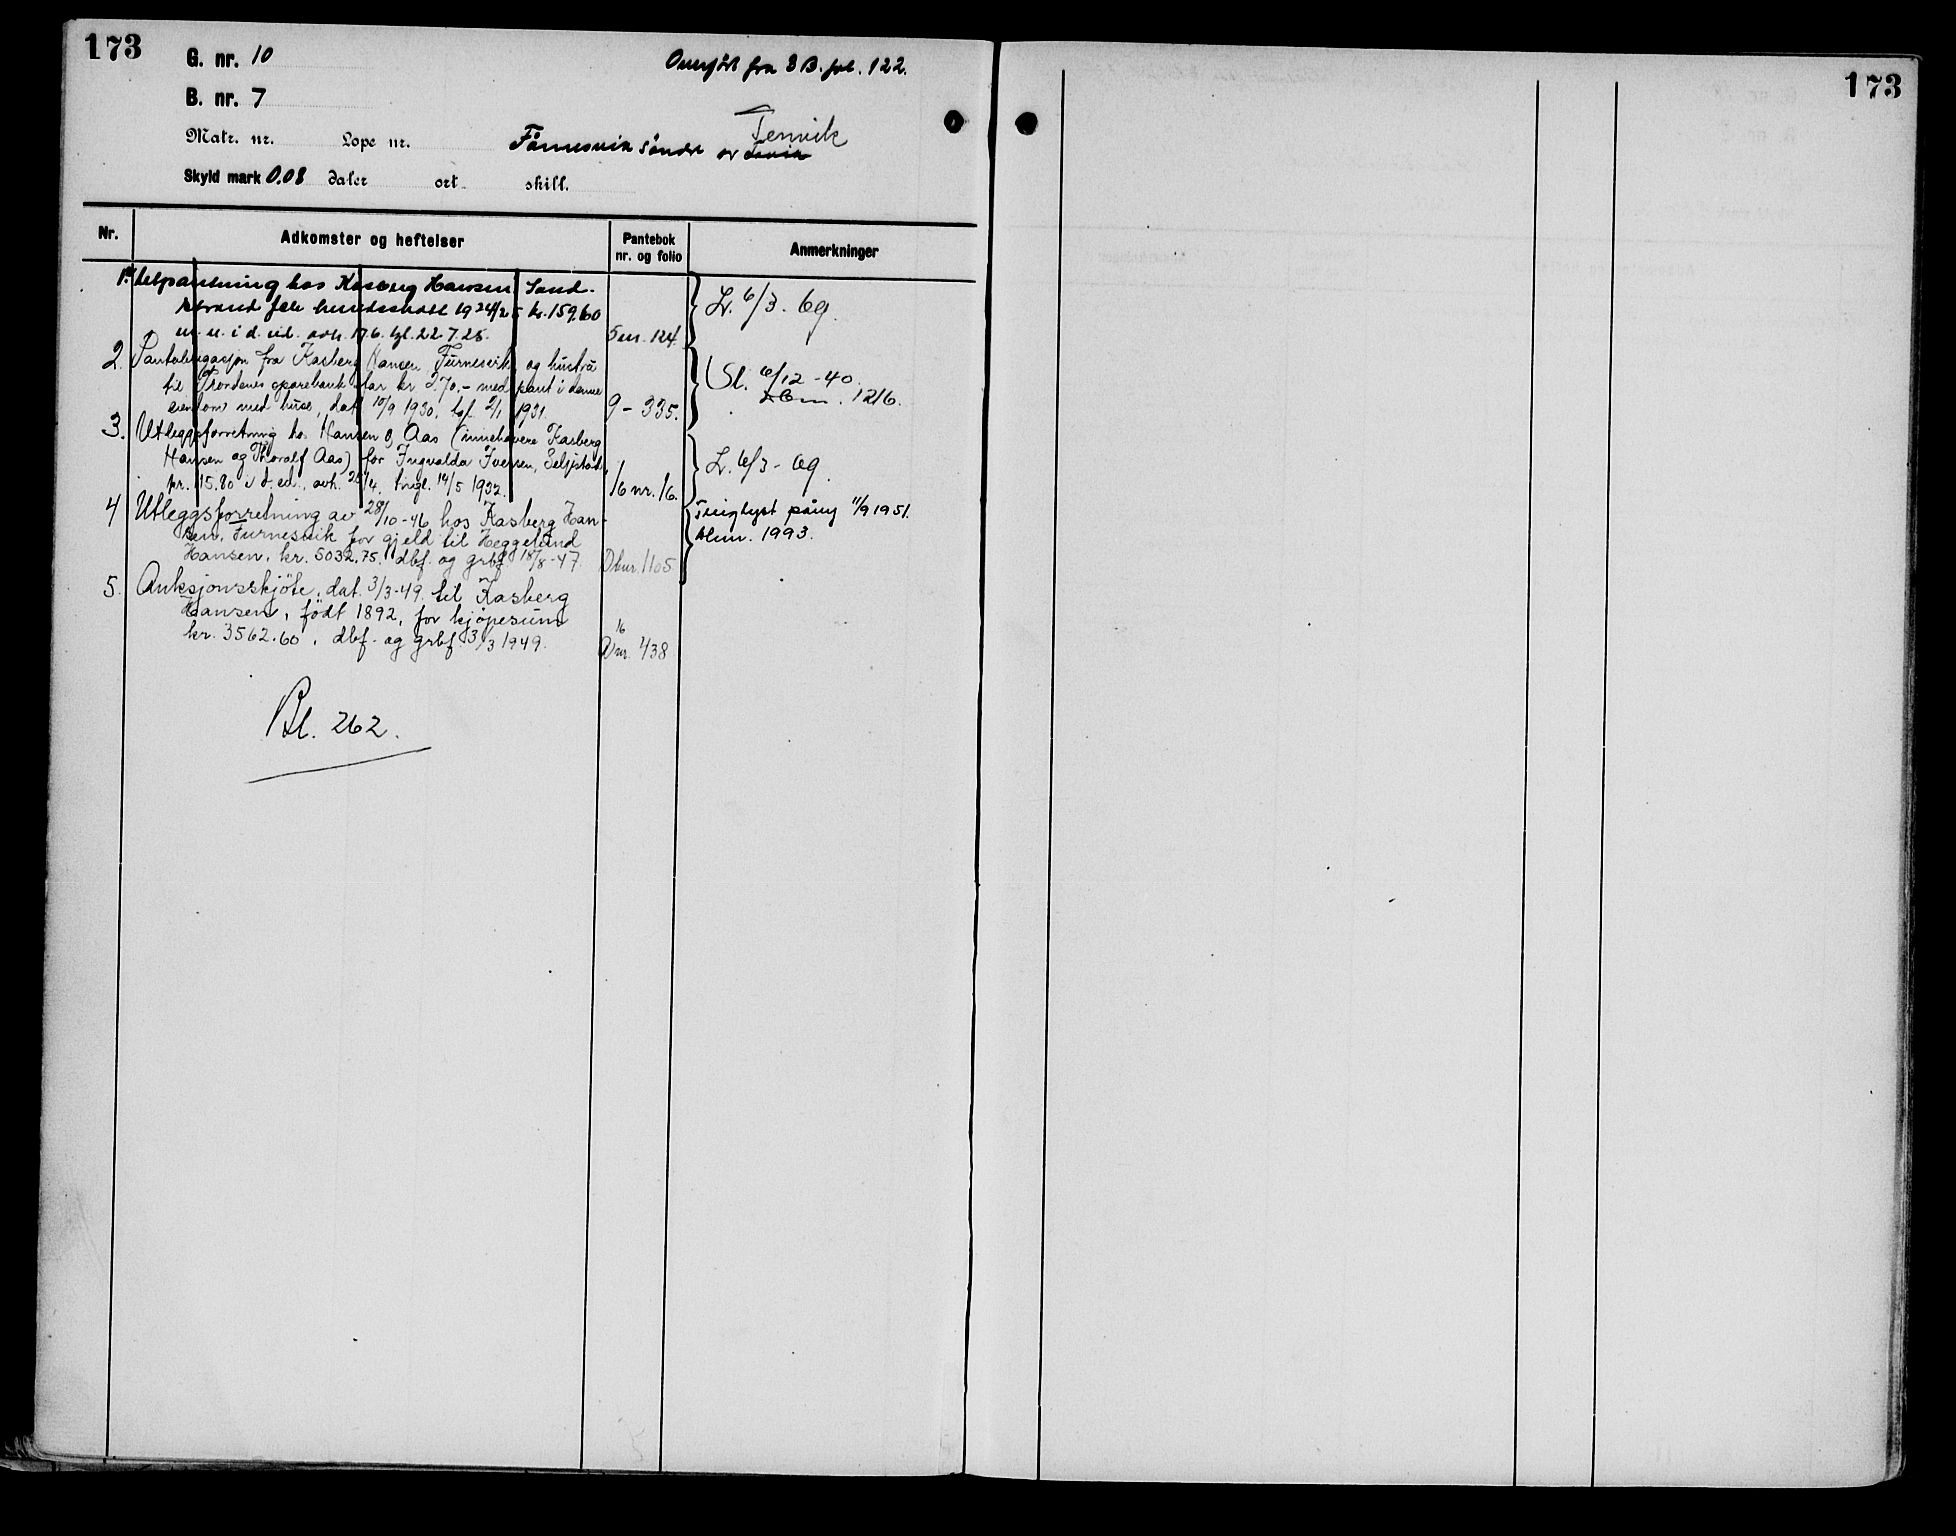 173
G. nr. 10
Overført fra 3 B. fol. 122.
B. nr. 7
Matr. nr. Løpe nr. Fornesvik søndre av Tenvik
Skyld mark 0.08 daler ort skill.
Nr. Adkomster og heftelser Pantebok nr. og folio Anmerkninger
1. Utpantning hos Kasberg Hansen Sand-
strand for 1924/25 kr. 159,60
m. u. i d. ed. avh. 17.6. tgl. 22.7.25. 5 124.
Lr. 6/3-69.
2. Pantobligasjon fra Kasberg Hansen Furnesvik og hustru
til Trondenes sparebank for kr 270.- med pant i denne
eiendom med huse, dat 10/9 1930, tgl. 2/1 1931. 9 - 335.
Sl. 6/12-40.
1216.
3. Utleggsforretning hos Hansen & Aas (innehavere Kasberg
Hansen og Thoralf Aas) for Ingvalda Iversen, Seljestad,
kr. 15.80 i d. ed., avh. 28/4. tingl. 14/5 1932. 16 nr. 16.
Lr. 6/3-69.
4 Utleggsforretning av 28/10-46 hos Kasberg Han-
sen, Furnesvik for gjeld til Heggelund
Hansen, kr. 5032.75. dbf. og grbf. 18/8-47. Dbnr. 1105
Tinglyst påny 11/9 1951.
dbnr. 1993.
5. Auksjonsskjöte, dat. 3/3-49. til Kasberg
Hansen, født 1892, for kjøpesum
kr. 3562.60, dbf. og grbf 3/3 1949. 16 Dnr. 438
Bl. 262.
173